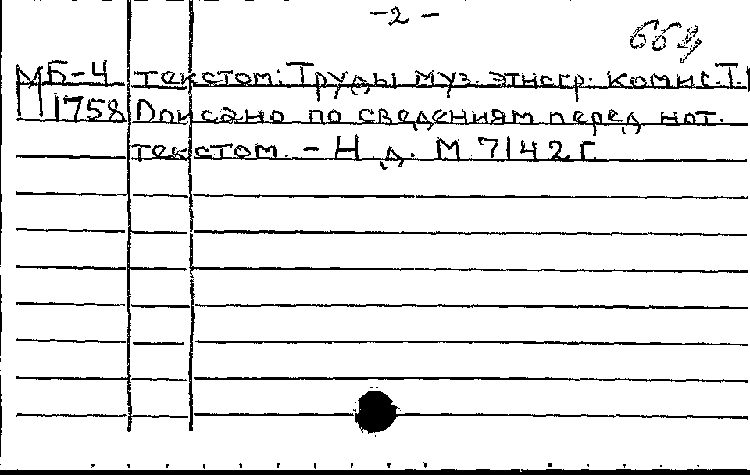 -2-
МБ-4 текстом: Труды муз. этногр. комис. Т.
1758 Описано по сведениям перед нот.
текстом. - Н.д. М 7142 г.